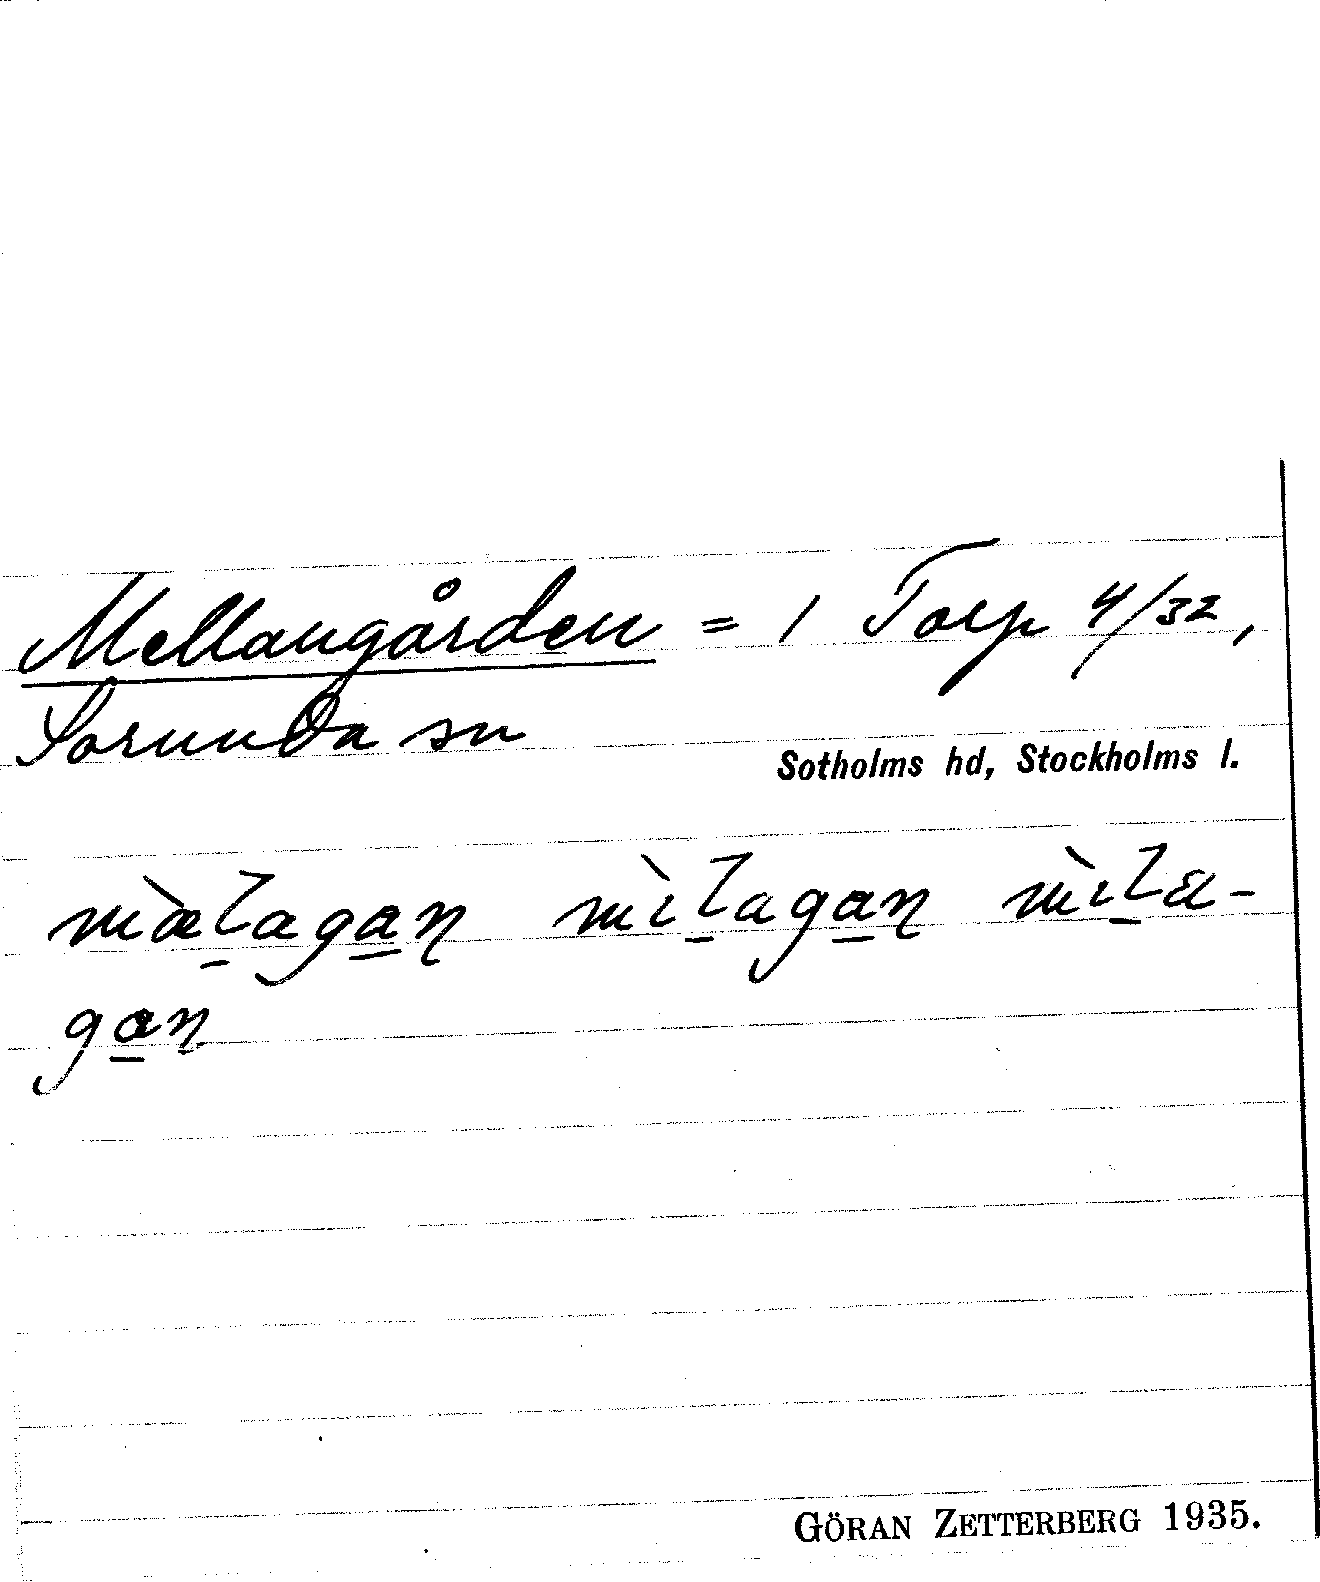 Mellangården = 1 Torp 4/32,
Sorunda sn
Sotholms hd, Stockholms l.
mæ̀l̠aga̠ɳ mìl̠aga̠ɳ mìl̠a-
ga̠ɳ
GÖRAN ZETTERBERG 1935.